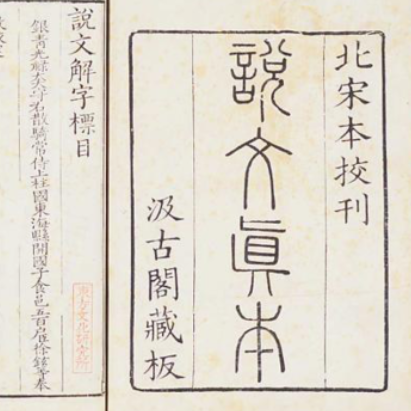 北宋本挍刊
說文眞本
汲古閣藏板
說文解字標目
銀青光祿大夫守右散騎常侍上柱國東海縣開國子食邑五百戶臣徐鉉等奉
東方文化研究所